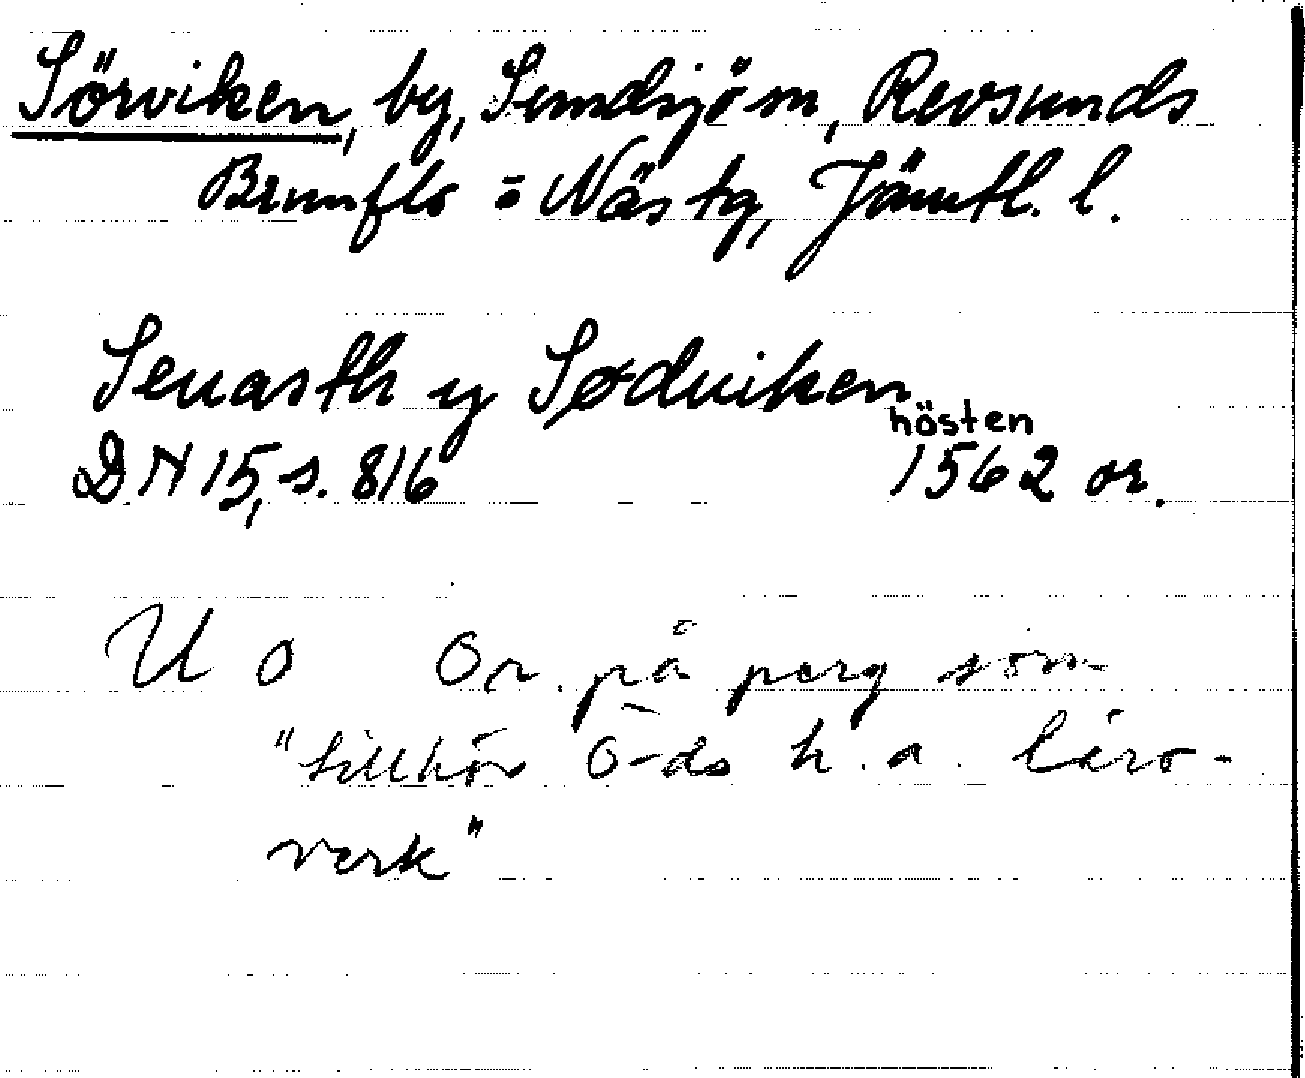 Sörviken, by, Sundsjö sn, Revsunds
Brunflo o Näs tg, Jämtl. l.
Seuasth y Søduiken
hösten
DN 15, s. 816 1562 or.
U O Or. på perg som
"tillhör Ö-ds h. a. läro-
verk"